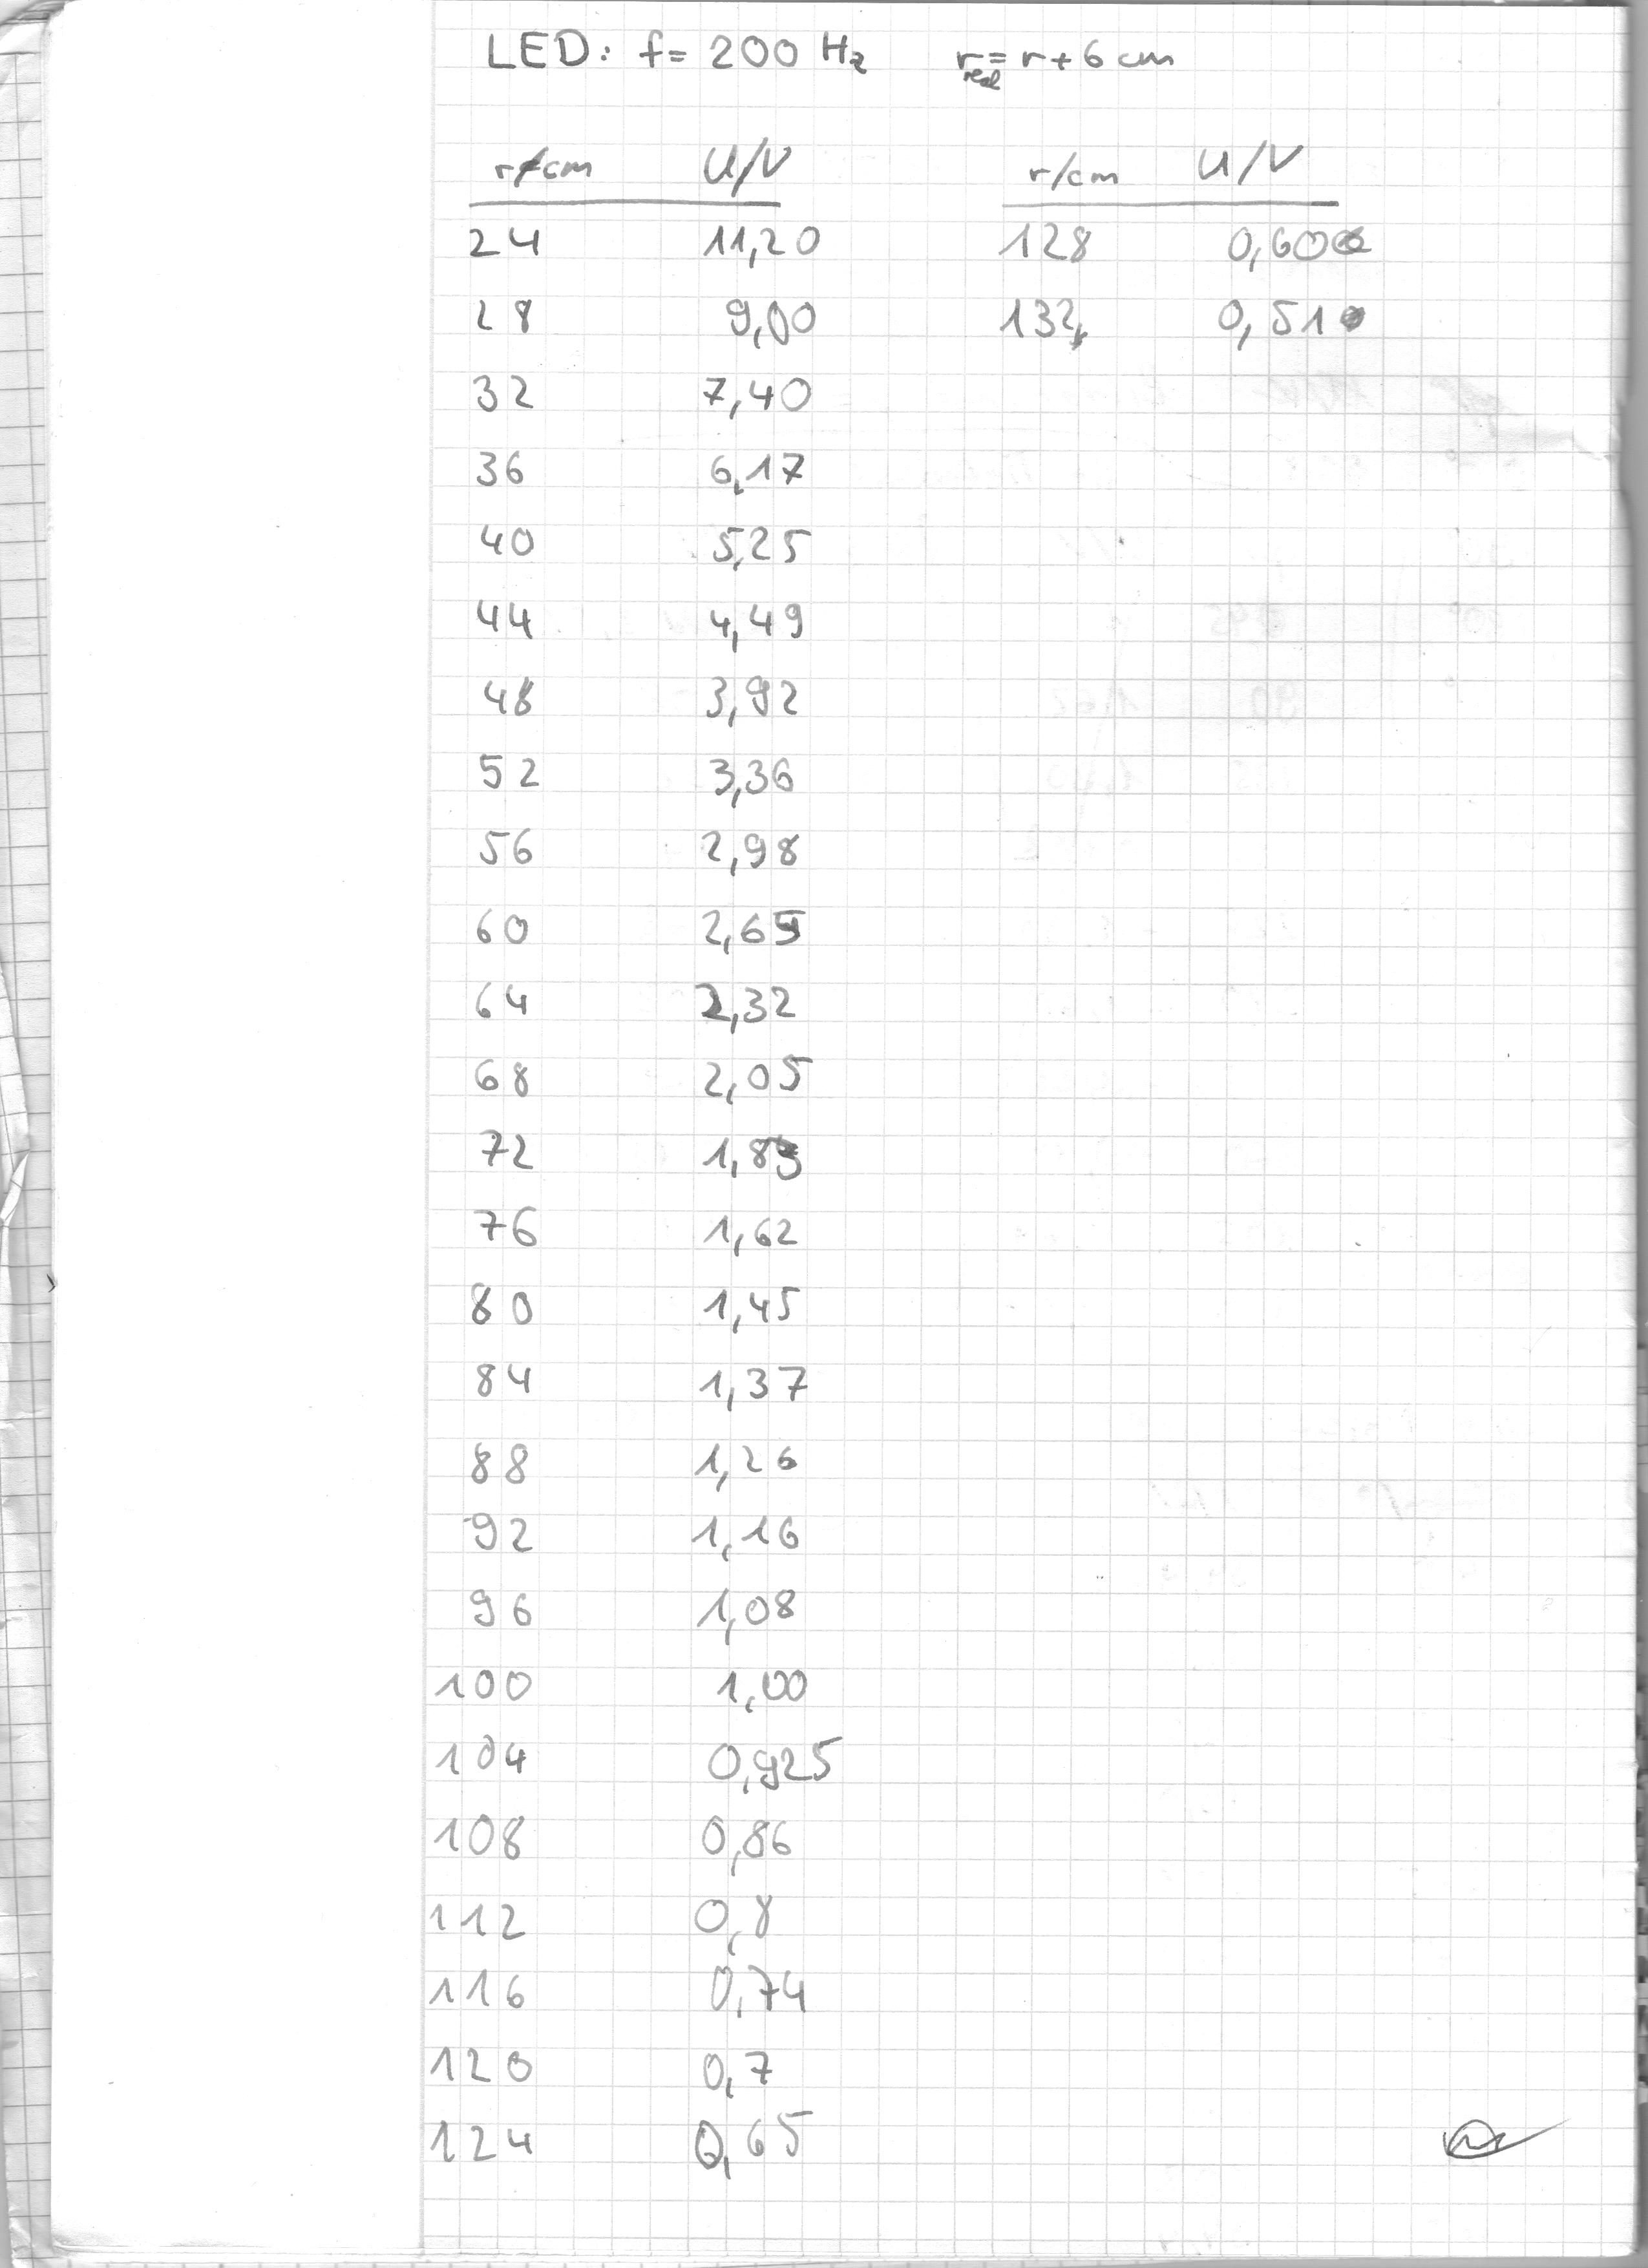 LED: f= 200 Hz r_real = r + 6 cm
r/cm U/V
24 11,20
28 9,00
32 7,40
36 6,17
40 5,25
44 4,49
48 3,92
52 3,36
56 2,98
60 2,65
64 2,32
68 2,05
72 1,83
76 1,62
80 1,45
84 1,37
88 1,26
92 1,16
96 1,08
100 1,00
104 0,925
108 0,86
112 0,8
116 0,74
120 0,7
124 0,65
r/cm U/V
128 0,60
132 0,51